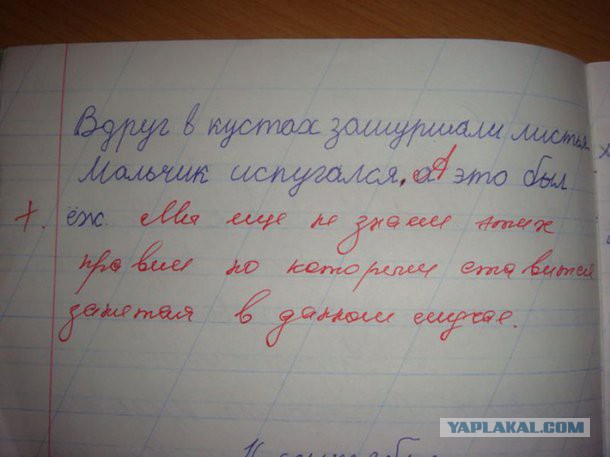 Вдруг в кустах зашуршали листья
Мальчик испугался. А это был
+. ёж. Мы ещё не знаем этих
правил по которым ставится
запятая в данном случае.
YAPLAKAL.COM